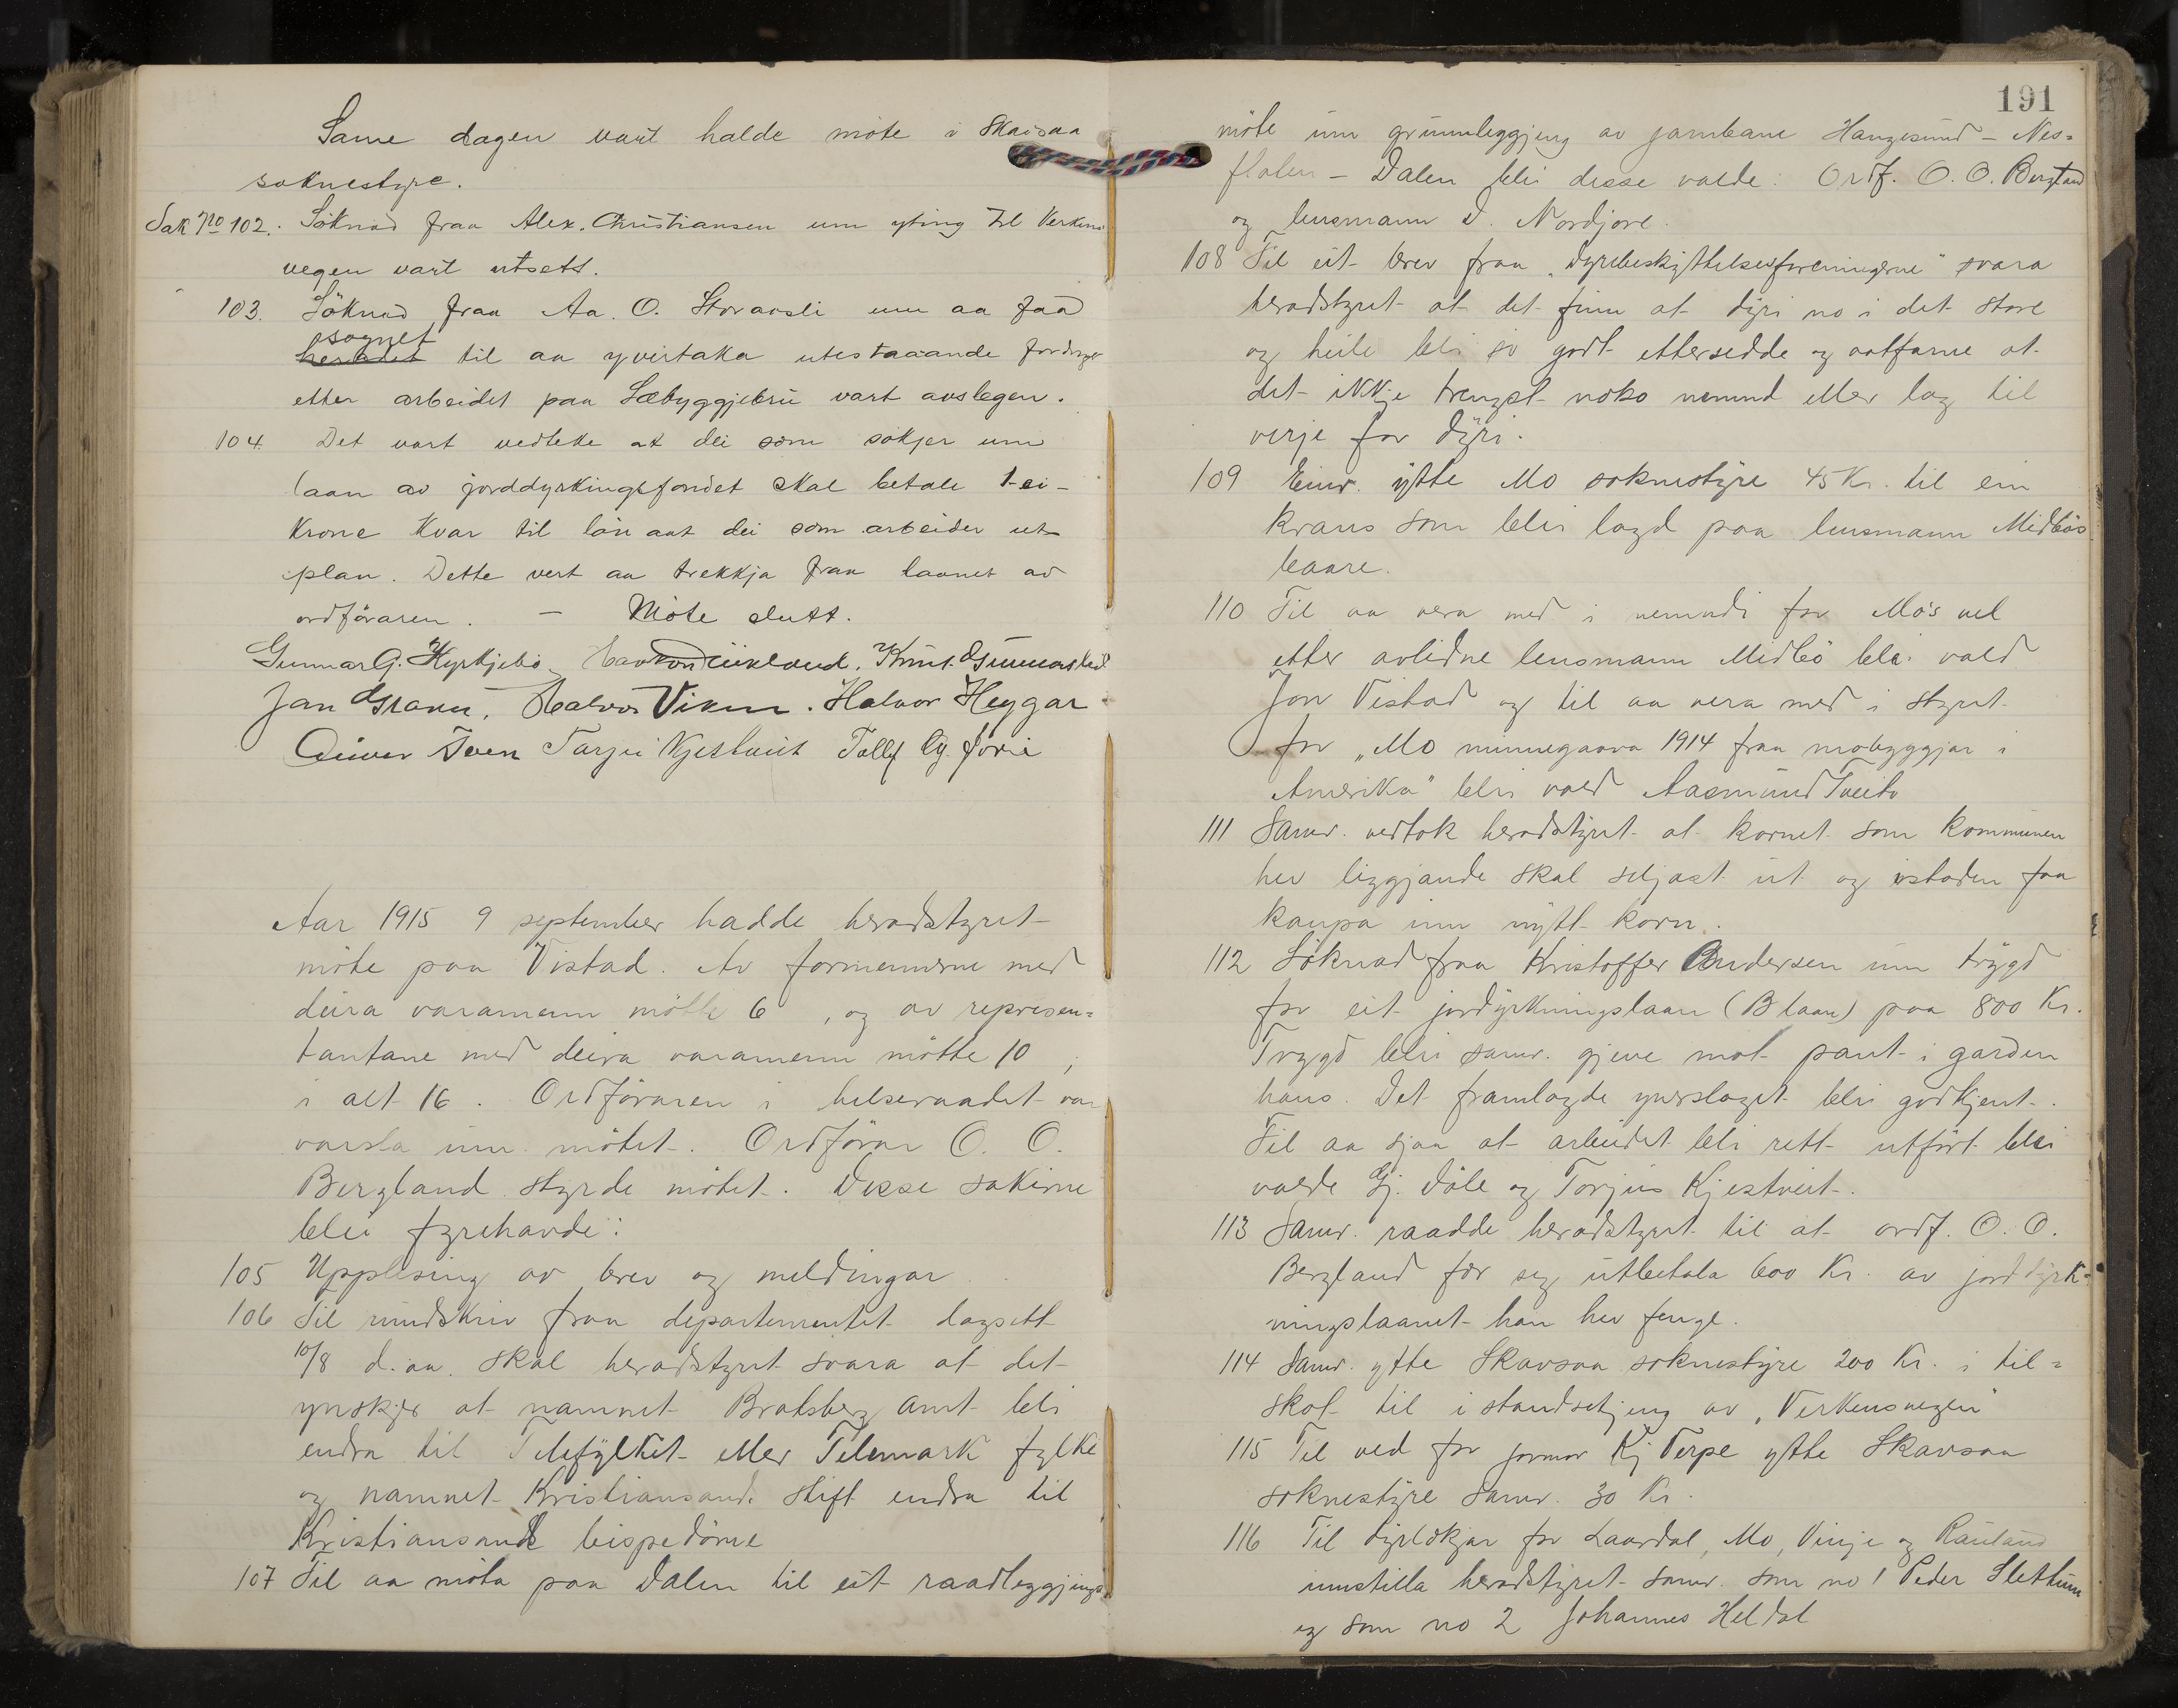 Same dagen vart halde möte i Skavsaa
soknestyre.
Sak No 102. Söknad fraa Alex. Christiansen um yting til Verkens
vegen vart utsett.
103. Söknad fraa Aa. O. Storaasli um aa faa
sognet
heradet til aa yvirtaka utestaaande fordringer
etter arbeidet paa Sæbyggjebru vart avslegen.
104. Det vart vedteke at dei som sökjer um
laan av jorddyrkingsfondet skal betale 1-ei-
krone kvar til lön aat dei som arbeider ut
plan. Dette vert aa trekkja fraa laanet av
ordföraren. — Möte slutt.
Gunnar G. Kyrkjebö. Haavond Kiivland. Knut Gunnarstad
Jan Gravn. Halvor Viken. Halvor Heggar
Eivor Tven Tarjei Kjestveit Tallef Gj. Jore
Aar 1915 9 september hadde heradstyret
möte paa Vistad. Av formennerne med
deira varamenn mötte 6, og av represen=
tantane med deira varamenn mötte 10;
i alt 16. Ordföraren i helseraadet var
varsla um mötet. Ordförar O. O.
Bergland styrde mötet. Desse sakirne
blei fyrehavde:
105 Upplesing av brev og meldingar
106 Til rundskriv fraa departementet dagsett
10/8 d. aa. skal heradstyret svara at det
ynskjer at namnet Bratsberg amt bli
endra til Telefylket eller Telemark fylke
og namnet Kristiansands stift endra til
Kristiansands bispedöme
107 Til aa möta paa Dalen til eit raadleggjings
191
möte um grunnleggjing av jarnbane Haugesund – Nes=
flaten – Dalen blei desse valde: Ordf. O. O. Bergland
og lensmann D. Nordjore.
108 Til eit brev fraa „Dyrebeskyttelsesforeningerne" svara
heradstyret at det finn at dyri no i det store
og heile bli so godt ettersedde og aatfarne at
det ikkje trengst noko nemnd eller lag til
verje for dyri.
109 Einr. ytte Mo soknestyre 45 Kr. til ein
krans som blei lagd paa lensmann Midbös
baare.
110 Til aa vera med i nemndi for Mo's vel
etter avlidne lensmann Midbö blei vald
Jon Vistad og til aa vera med i styret
for „Mo minnegaava 1914 fraa mobyggjar i
Amerika" blei vald Aasmund Tveito
111 Samr. vedtok heradstyret at kornet som kommunen
hev liggjande skal seljast ut og istaden faa
kaupa inn nytt korn.
112 Söknad fraa Kristoffer Andersen um trygd
for eit jordyrkningslaan (B laan) paa 800 Kr.
Trygd blei samr. gjeve mot pant i garden
hans. Det framlagde yverslaget blei godkjent.
Til aa sjaa at arbeidet bli rett utfört blei
valde Gj. Döle og Torjus Kjestveit.
113 Samr. raadde heradstyret til at ordf. O. O.
Bergland fær seg utbetala 600 Kr. av jorddyrk=
ningslaanet han hev fenge.
114 Samr. ytte Skavsaa soknestyre 200 Kr. i til=
skot til i standsetjing av „Verkensvegen"
115 Til ved for jormor Kj Verpe ytte Skavsaa
soknestyre samr. 30 Kr.
116 Til dyrlækjar for Laardal, Mo, Vinje og Rauland
innstilla heradstyret samr. som no 1 Peder Slettum
og som no 2 Johannes Heldal